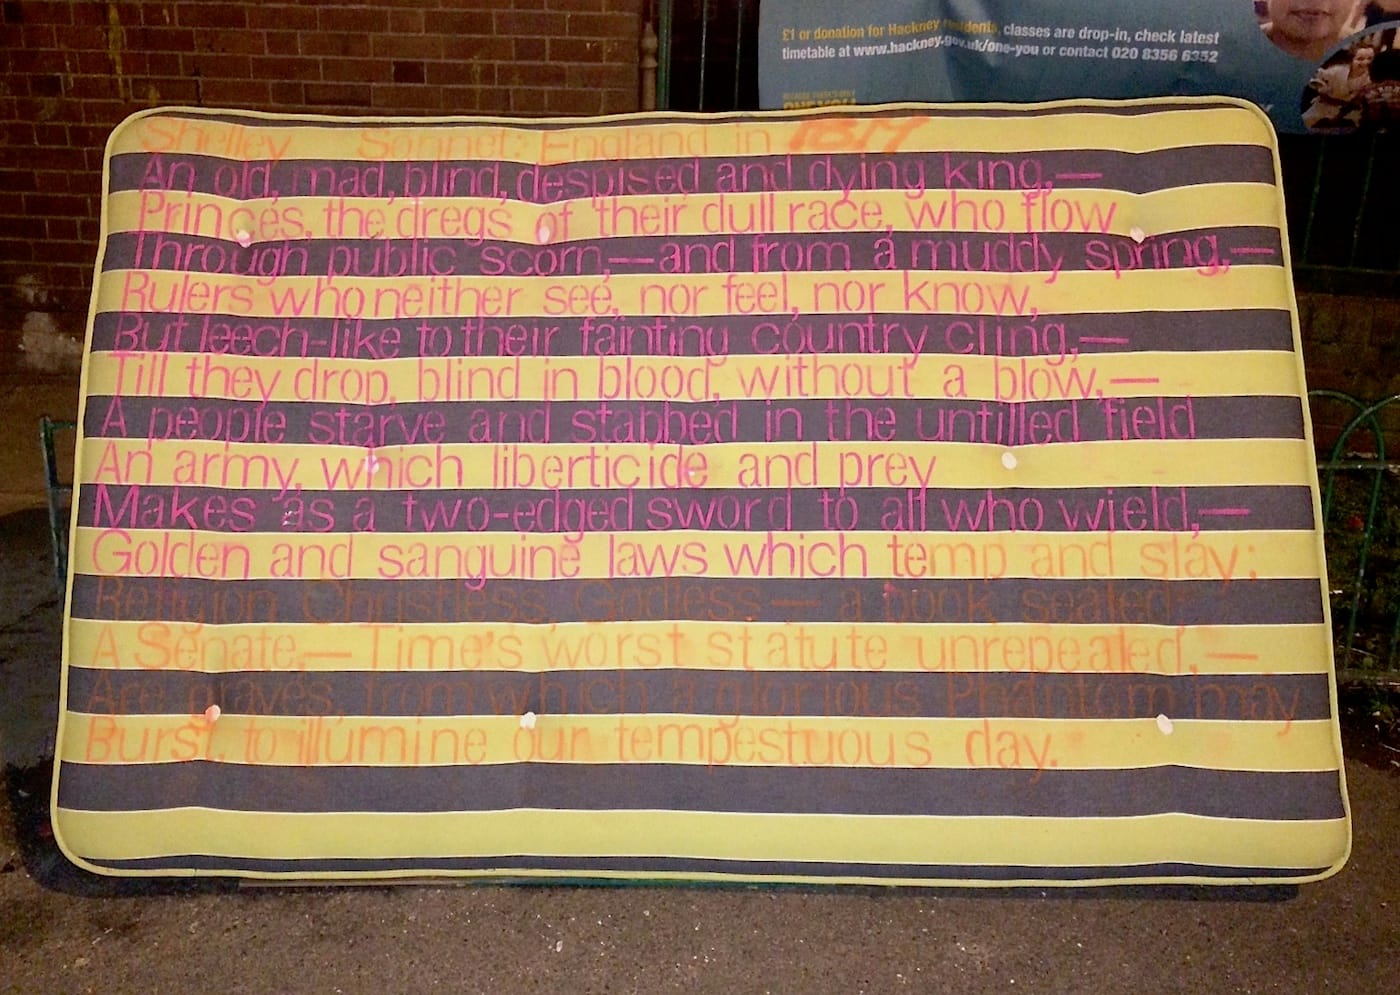 £1 or donation for Hackney residents, classes are drop-in, check latest
timetable at www.hackney.gov.uk/one-you or contact 020 8356 6352
ONE YOU
Shelley Sonnet: England in
An old, mad, blind, despised and dying king,—
Princes, the dregs of their dull race, who flow
Through public scorn,—and from a muddy spring,—
Rulers who neither see, nor feel, nor know,
But leech-like to their fainting country cling,—
Till they drop, blind in blood, without a blow,—
A people starve and stabbed in the untilled field
An army, which liberticide and prey
Makes as a two-edged sword to all who wield,—
Golden and sanguine laws which temp and slay;
Religion Christless, Godless— a book sealed;
A Senate,—Time's worst statute unrepealed,—
Are graves, from which a glorious Phantom may
Burst, to illumine our tempestuous day.